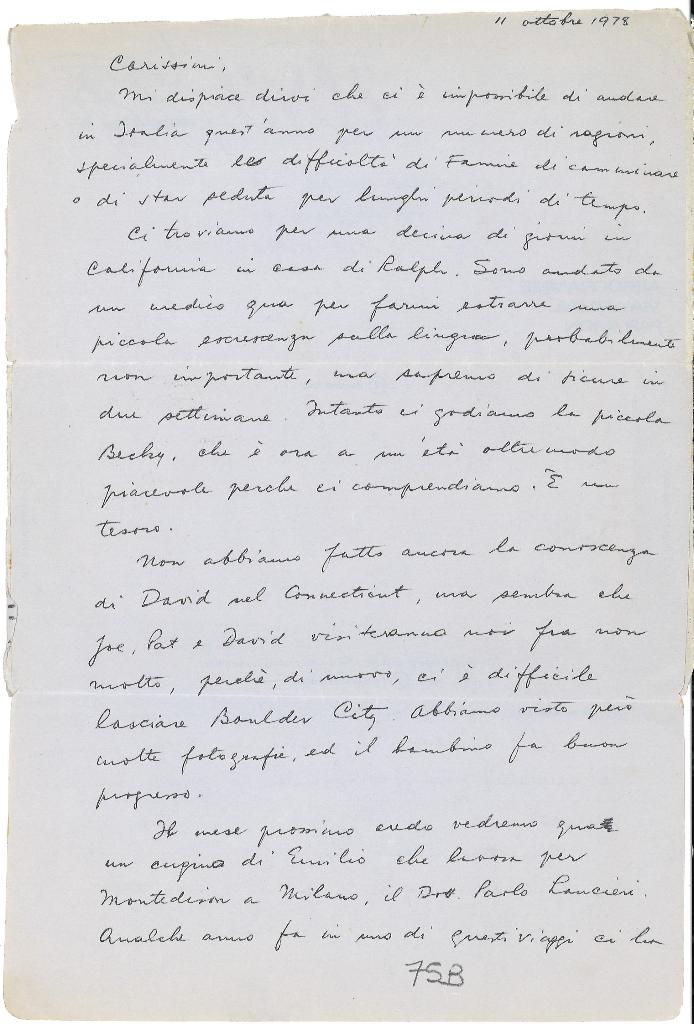 11 ottobre 1978
Carissimi,
Mi dispiace dirvi che ci è impossibile di andare
in Italia quest'anno per un numero di ragioni,
specialmente le difficoltà di Fannie di camminare
o di star seduta per lunghi periodi di tempo.
Ci troviamo per una decina di giorni in
California in casa di Ralph. Sono andato da
un medico qua per farmi estrarre una
piccola escrescenza sulla lingua, probabilmente
non importante, ma sapremo di sicuro in
due settimane. Intanto ci godiamo la piccola
Becky, che è ora a un'età oltremodo
piacevole perche ci comprendiamo. È un
tesoro.
Non abbiamo fatto ancora la conoscenza
di David nel Connecticut, ma sembra che
Joe, Pat e David visiteranno noi fra non
molto, perchè, di nuovo, ci è difficile
lasciare Boulder City. Abbiamo visto però
molte fotografie, ed il bambino fa buon
progresso.
Il mese prossimo credo vedremo qua
un cugino di Emilio che lavora per
Montedison a Milano, il Dott. Paolo Lancieri.
Qualche anno fa in uno di questi viaggi ci ha
75B